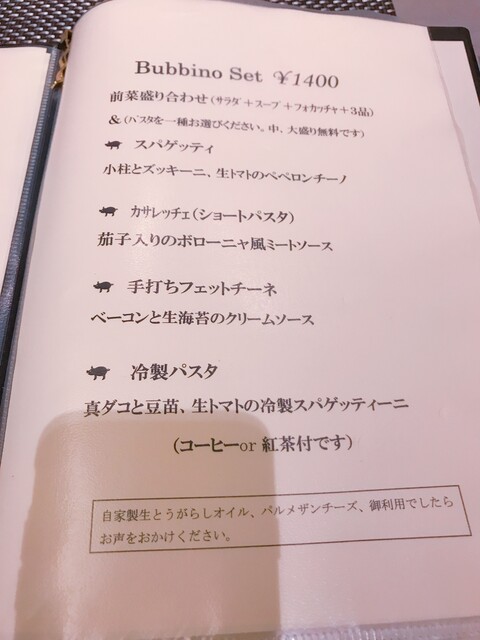 Bubbino Set ¥1400
前菜盛り合わせ（サラダ+スープ+フォカッチャ+3品）
&（パスタを一種お選びください。中、大盛り無料です）
スパゲッティ
小柱とズッキーニ、生トマトのペペロンチーノ
カサレッチェ（ショートパスタ）
茄子入りのボローニャ風ミートソース
手打ちフェットチーネ
ベーコンと生海苔のクリームソース
冷製パスタ
真ダコと豆苗、生トマトの冷製スパゲッティーニ
（コーヒーor 紅茶付です）
自家製生とうがらしオイル、パルメザンチーズ、御利用でしたら
お声をおかけください。